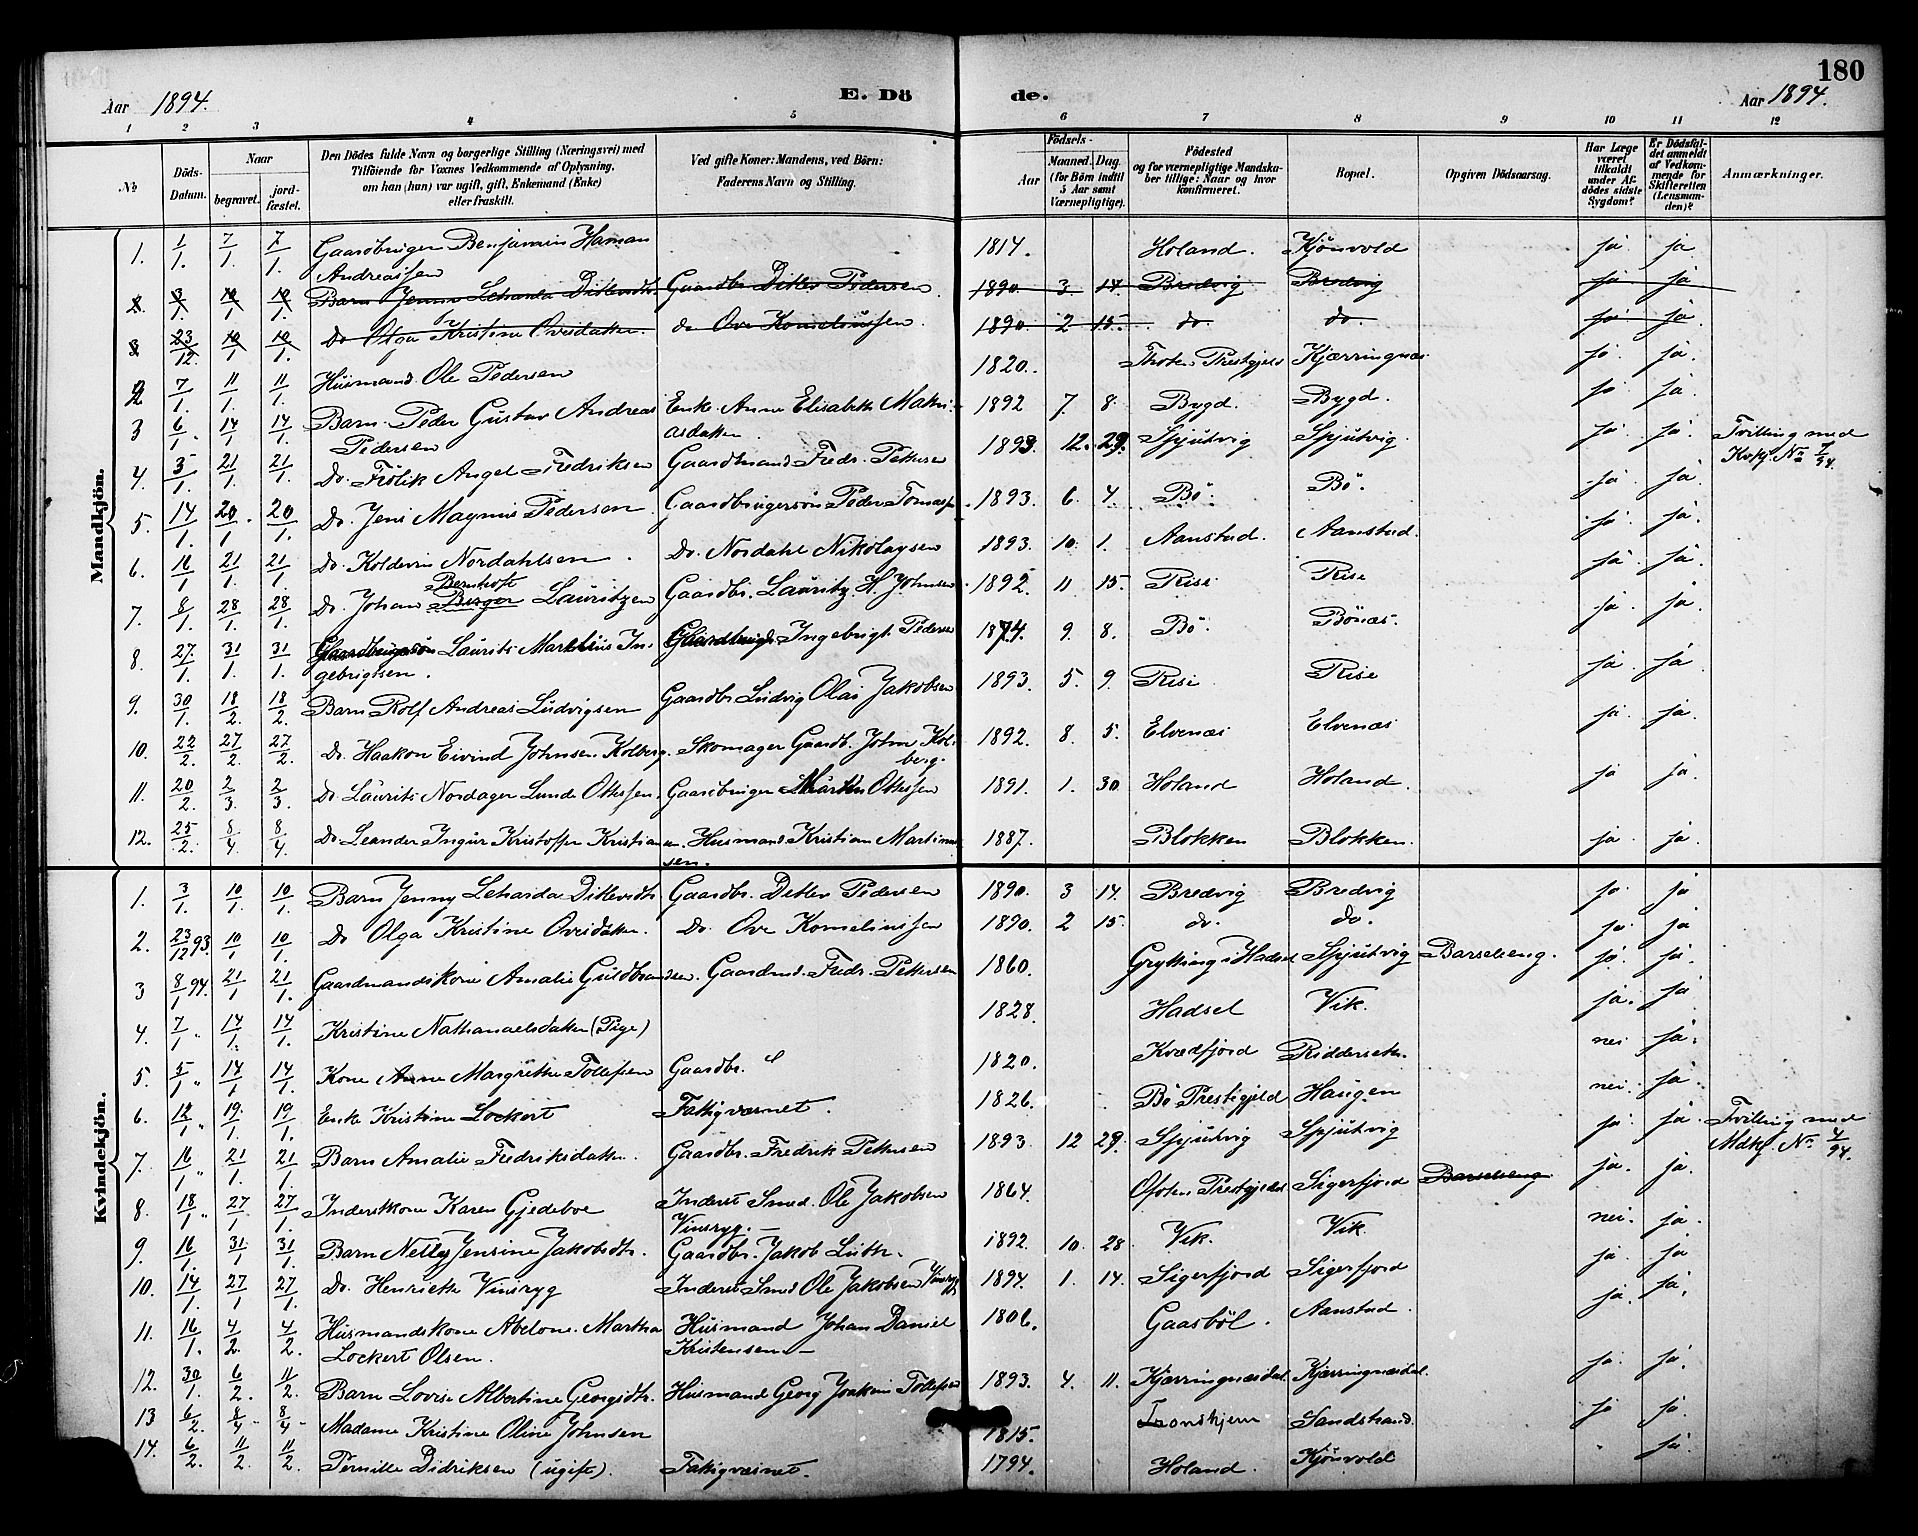 180
Aar 1894. E. Dö de. Aar 1894.
1 2 3 4 5 6 7 8 9 10 11 12
No Döds-Datum. Naar begravet. jordfæstet. Den Dödes fulde Navn og borgerlige Stilling (Næringsvei) med Tilföiende for Voxnes Vedkommende af Oplysning, om han (hun) var ugift, gift, Enkemand (Enke) eller fraskilt. Ved gifte Koner: Mandens, ved Börn: Faderens Navn og Stilling. Födsels- Aar Maaned. Dag. (for Börn indtil 5 Aar samt Værnepligtige). Födested og for værnepligtige Mandskaber tillige: Naar og hvor konfirmeret. Bopæl. Opgiven Dödsaarsag. Har Læge været tilkaldt under Afdödes sidste Sygdom? Er Dödsfaldet anmeldt af Vedkommende for Skifteretten (Lensmanden)? Anmærkninger.
Mandkjön.
1. 1/1. 7/1. 7/1. Gaardbruger Benjamin Haman Andreassen 1814. Holand. Kjönvold ja. ja
2. 3/1. 10/1. 10/1. Barn Jenny Leharda Ditlevsdtr. Gaardbr. Ditlev Pedersen. 1890. 3 14. Bredvig Bredvig ja ja
3 23/12. 10/1 10/1. Do Olga Kristine Ovesdatter. do Ove Kornelinssen. 1890. 2 15. do. do. ja ja.
2 7/1. 11/1. 11/1. Husmand. Ole Pedersen 1820. Thoten Prestgjeld Kjærringnæs. ja. ja.
3 6/1. 14/1. 14/1. Barn Peder Gustav Andreas Pedersen Enke Anne Elisabeth Mathiasdatter. 1892 7. 8. Bygd. Bygd. ja. ja.
4. 5/1. 21/1. 21/1. Do. Frölik Angel Fredriksen Gaardmand Fredr. Pettersen 1893. 12. 29. Spjutvig Spjutvig. ja. ja. Tvilling med Kvkj. No 7/94.
5. 14/1. 20/1. 20/1. Do. Jens Magnus Pedersen. Gaardbrugersön Peder Tomass. 1893. 6. 4. Bö. Bö. ja. ja.
6. 16/1 21/1. 21/1. Do. Kolderin Nordahlsen. Do. Nordahl Nikolaysen 1893. 10. 1. Aanstad. Aanstad. ja. ja.
7. 8/1. 28/1. 28/1. Do. Johan Birger Bernhoft Lauritzen Gaardbr. Lauritz H. Johnsen. 1892. 11 15. Rise Rise ja. ja.
8. 27/1. 31/1. 31/1. Gaardbrugersön Laurits Martinus Ingebrigtsen. Gaardbruger Ingebrigt Pedersen 1874. 9. 8. Bö. Bönæs. ja. ja.
9. 30/1 18/2. 18/2. Barn Rolf Andreas Ludvigsen Gaardbr Ludvig Olai Jakobsen 1893. 5. 9. Rise Rise ja. ja.
10. 22/2. 27/2. 27/2. Do. Haakon Eivind Johnsen Kolberg. Skomager Gaardb. John Kolberg. 1892. 8. 5. Elvenæs Elvenæs ja. ja.
11. 20/2. 2/3. 2/3. Do Laurits Nordager Lunde Ottesen. Gaardbruger Martin Ottesen 1891. 1. 30. Holand Holand. ja ja.
12. 25/2. 8/4. 8/4. Do. Leander Ingur Kristoffer Kristiansen. Husmand Kristian Martinussen. 1887. Blokken Blokken. ja. ja.
Kvindekjön.
1. 3/1. 10/1. 10/1. Barn Jenny Leharda Ditlevsdtr. Gaardbr. Ditlev Pedersen 1890. 3 14. Bredvig Bredvig ja. ja
2. 23/12 93. 10/1. 10/1. Do Olga Kristine Ovesdatter. Do. Ove Kornelinssen 1890. 2 15. do. do. ja. ja
3 8/1 94. 21/1 21/1. Gaardmandskone Amalie Guldbrandsen. Gaardmd. Fredr. Pettersen 1860. Grytting i Hadsel Spjutvig Barseleng. ja. ja.
4. 7/1 " 14/1. 14/1. Kristine Nathanaelsdatter (Pige) 1828. Hadsel Vik. ja. ja
5. 5/1 " 14/1 14/1. Kone Anne Margrethe Tollefsen Gaardbr. 1820. Kvædfjord Riddersetr. nei ja.
6. 12/1 " 19/1. 19/1. Enke Kristine Lockert Fattigvæsnet. 1826. Bö Prestegjeld Haugen nei. ja.
7. 16/1 " 21/1. 21/1. Barn Amalie Fredriksdatter. Gaardbr. Fredrik Pettersen 1893 12 29. Spjutvig Spjutvig ja. ja. Tvilling med Mdkj. No 4/94.
8. 18/1 " 27/1. 27/1. Inderstkone Karen Gjedeboe Inderst Smed. Ole Jakobsen Vinsryg. 1864. Ofoten Prestgjeld Sigerfjord Barseleng ja. ja.
9. 16/1. 31/1. 31/1. Barn Nelly Jensine Jakobsdtr. Gaardbr. Jakob Luth. 1892. 10. 28. Vik. Vik. nei. ja.
10. 14/1. 27/1 27/1. Do. Henriette Vinsryg Inderst Smed Ole Jakobsen Vinsryg 1894. 1. 14. Sigerfjord Sigerfjord ja. ja
11. 16/1. 4/2. 4/2. Husmandskone Abelone Martha Lockert Olsen. Husmand Johan Daniel Kristensen. 1806. Gaasböl. Aanstad. ja. ja.
12. 30/1. 6/2. 11/2. Barn Lovise Albertine Georgsdtr. Husmand Georg Joakim Tollefsen 1893. 4. 11. Kjærringnæsdal Kjærringnæsdal. ja. ja.
13 6/2. 8/4. 8/4. Madame Kristine Oline Johnsen 1815. Tronhjem Sandstrand. ja ja.
14. 6/2. 11/2. 11/2. Pernille Didriksen (ugift). Fattigvæsnet. 1794. Holand. Kjönvold ja.